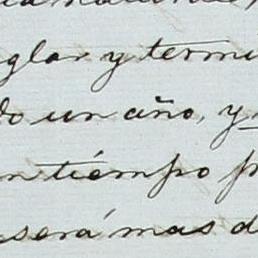 glar y termi
do un año, y
n tiémpo p
será mas d